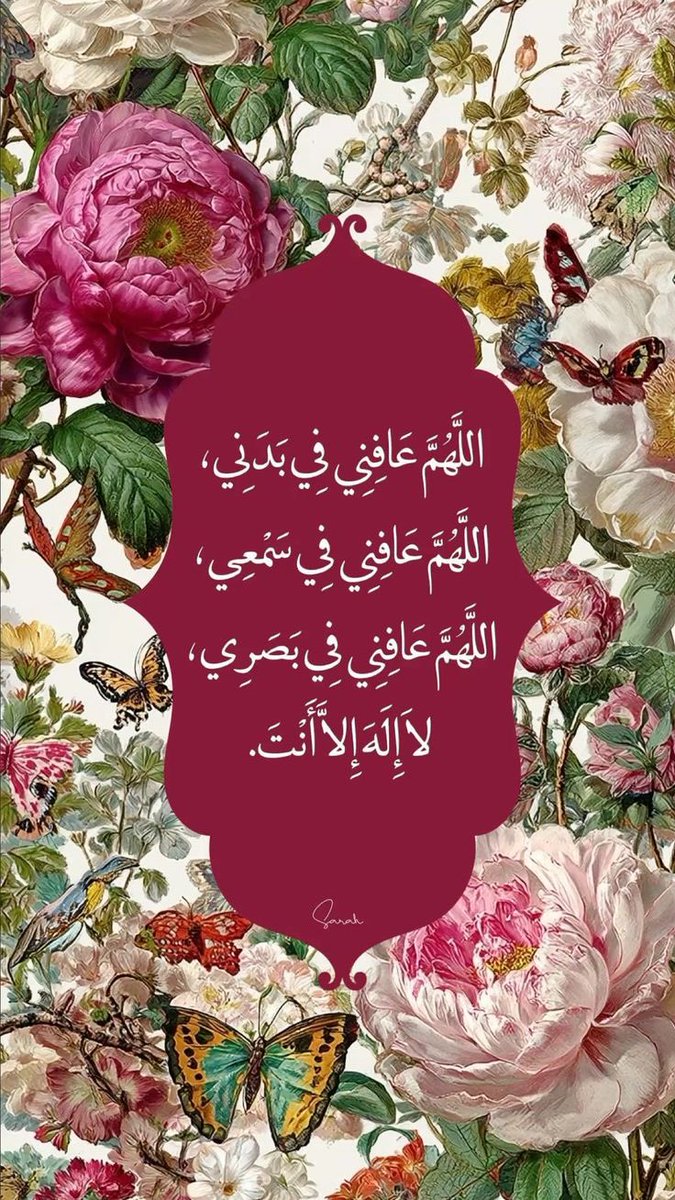 اللَّهُمَّ عَافِنِي فِي بَدَنِي،
اللَّهُمَّ عَافِنِي فِي سَمْعِي،
اللَّهُمَّ عَافِنِي فِي بَصَرِي،
لاَ إِلَهَ إِلاَّ أَنْتَ.
Sarah